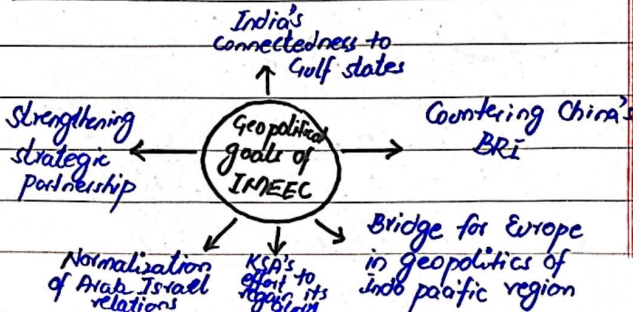 India's
connectedness to
Gulf states
Strengthening
strategic
partnership
Geopolitical
goals of
IMEEC
Countering China's
BRI
Normalization
of Arab Israel
relations
KSA's
effort to
regain its
Bridge for Europe
in geopolitics of
Indo pacific region